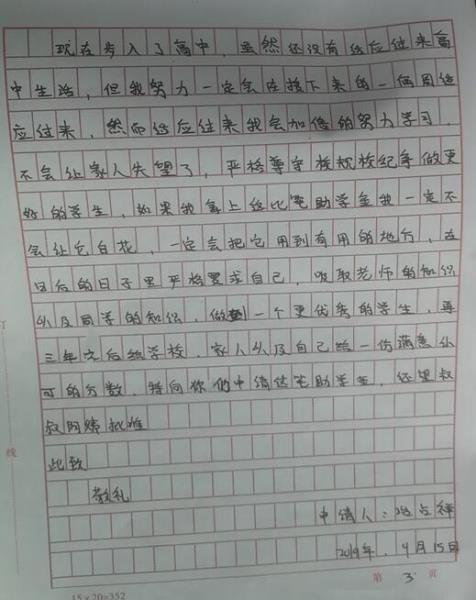 现在步入了高中，虽然还没有适应过来高
中生活，但我努力一定会在接下来的一个周适
应过来，然而适应过来我会加倍的努力学习，
不会让家人失望了，严格尊守校规校纪争做更
好的学生，如果我算上这比笔助学金我一定不
会让它白花，一定会把它用到有用的地方，在
日后的日子里严格要求自己，吸取老师的知识
以及同学的知识，做到一个更优秀的学生，再
三年之后给学校、家人以及自己给一份满意认
可的分数，特向你们申请这笔助学金，还望叔
叔阿姨批准
此致
敬礼
申请人：
2019年．9月15日
第 3 页
15×20=352
线